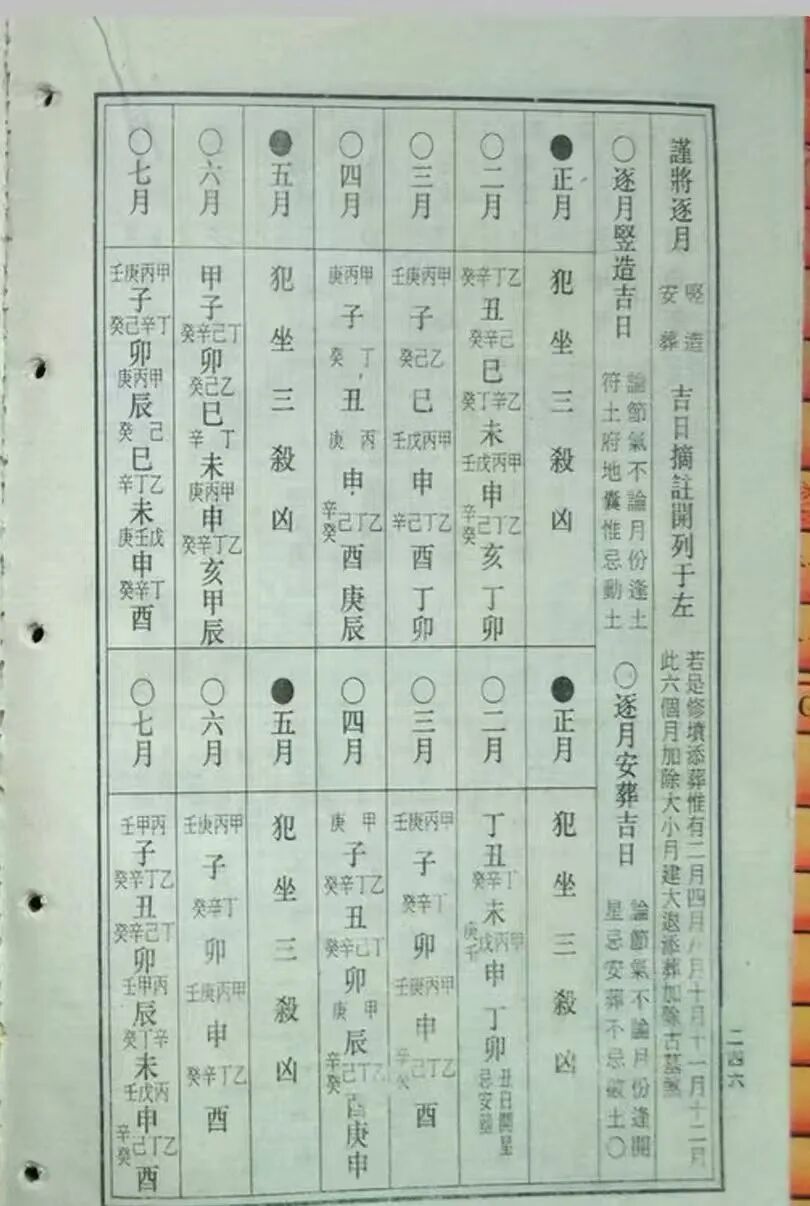 謹將逐月
竪造
安葬
吉日摘註開列于左
若是修墳添葬惟有二月四月八月十月十一月十二月
此六個月加除大小月建大退添葬加除古墓煞
〇逐月竪造吉日
論節氣不論月份逢土
符土府地囊惟忌動土
●正月
犯坐三殺凶
〇二月
乙丁辛癸
丑
己辛癸
巳
乙辛丁癸
未
甲丙戊壬
申
乙丁己辛癸
亥
丁卯
〇三月
甲丙庚壬
子
乙己癸
巳
甲丙戊壬
申
乙丁己辛
酉
丁卯
〇四月
甲丙庚
子
丁癸
丑
丙庚
申
乙丁己辛癸
酉
庚辰
●五月
犯坐三殺凶
〇六月
甲子
丁己辛癸
卯
乙己癸
巳
丁辛
未
甲丙庚
申
乙丁辛癸
亥
甲辰
〇七月
甲丙庚壬
子
丁辛己癸
卯
甲丙庚
辰
己癸
巳
乙丁辛
未
戊壬庚
申
丁辛癸
酉
〇逐月安葬吉日
論節氣不論月份逢開
星忌安葬不忌破土〇
●正月
犯坐三殺凶
〇二月
丁丑
丁辛癸
未
甲丙戊庚壬
申
丁卯
丑日開星
忌安葬
〇三月
甲丙庚壬
子
丁辛癸
卯
甲丙庚壬
申
乙丁己辛癸
酉
〇四月
甲庚
子
乙丁辛癸
丑
丁己辛癸
卯
甲庚
辰
乙丁己辛癸
酉
庚申
●五月
犯坐三殺凶
〇六月
甲丙庚壬
子
丁辛癸
卯
甲丙庚壬
申
乙丁辛癸
酉
〇七月
丙甲壬
子
乙丁辛癸
丑
丁己辛癸
卯
丙甲壬
辰
辛丁癸
未
丙戊壬
申
乙丁己辛癸
酉
二四六